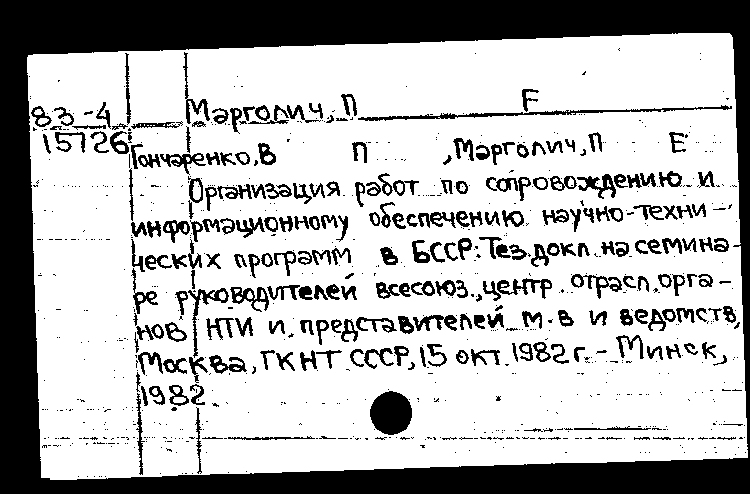 83-4 Марголич, П Е
15726 Гончаренко, В П , Марголич, П Е
Организация работ по сопровождению и
информационному обеспечению научно-техни-
ческих программ в БССР: Тез. докл. на семина-
ре руководителей всесоюз., центр. отрасл. орга-
нов НТИ и представителей м-в и ведомств,
Москва, ГКНТ СССР, 15 окт. 1982 г. - Минск,
1982.